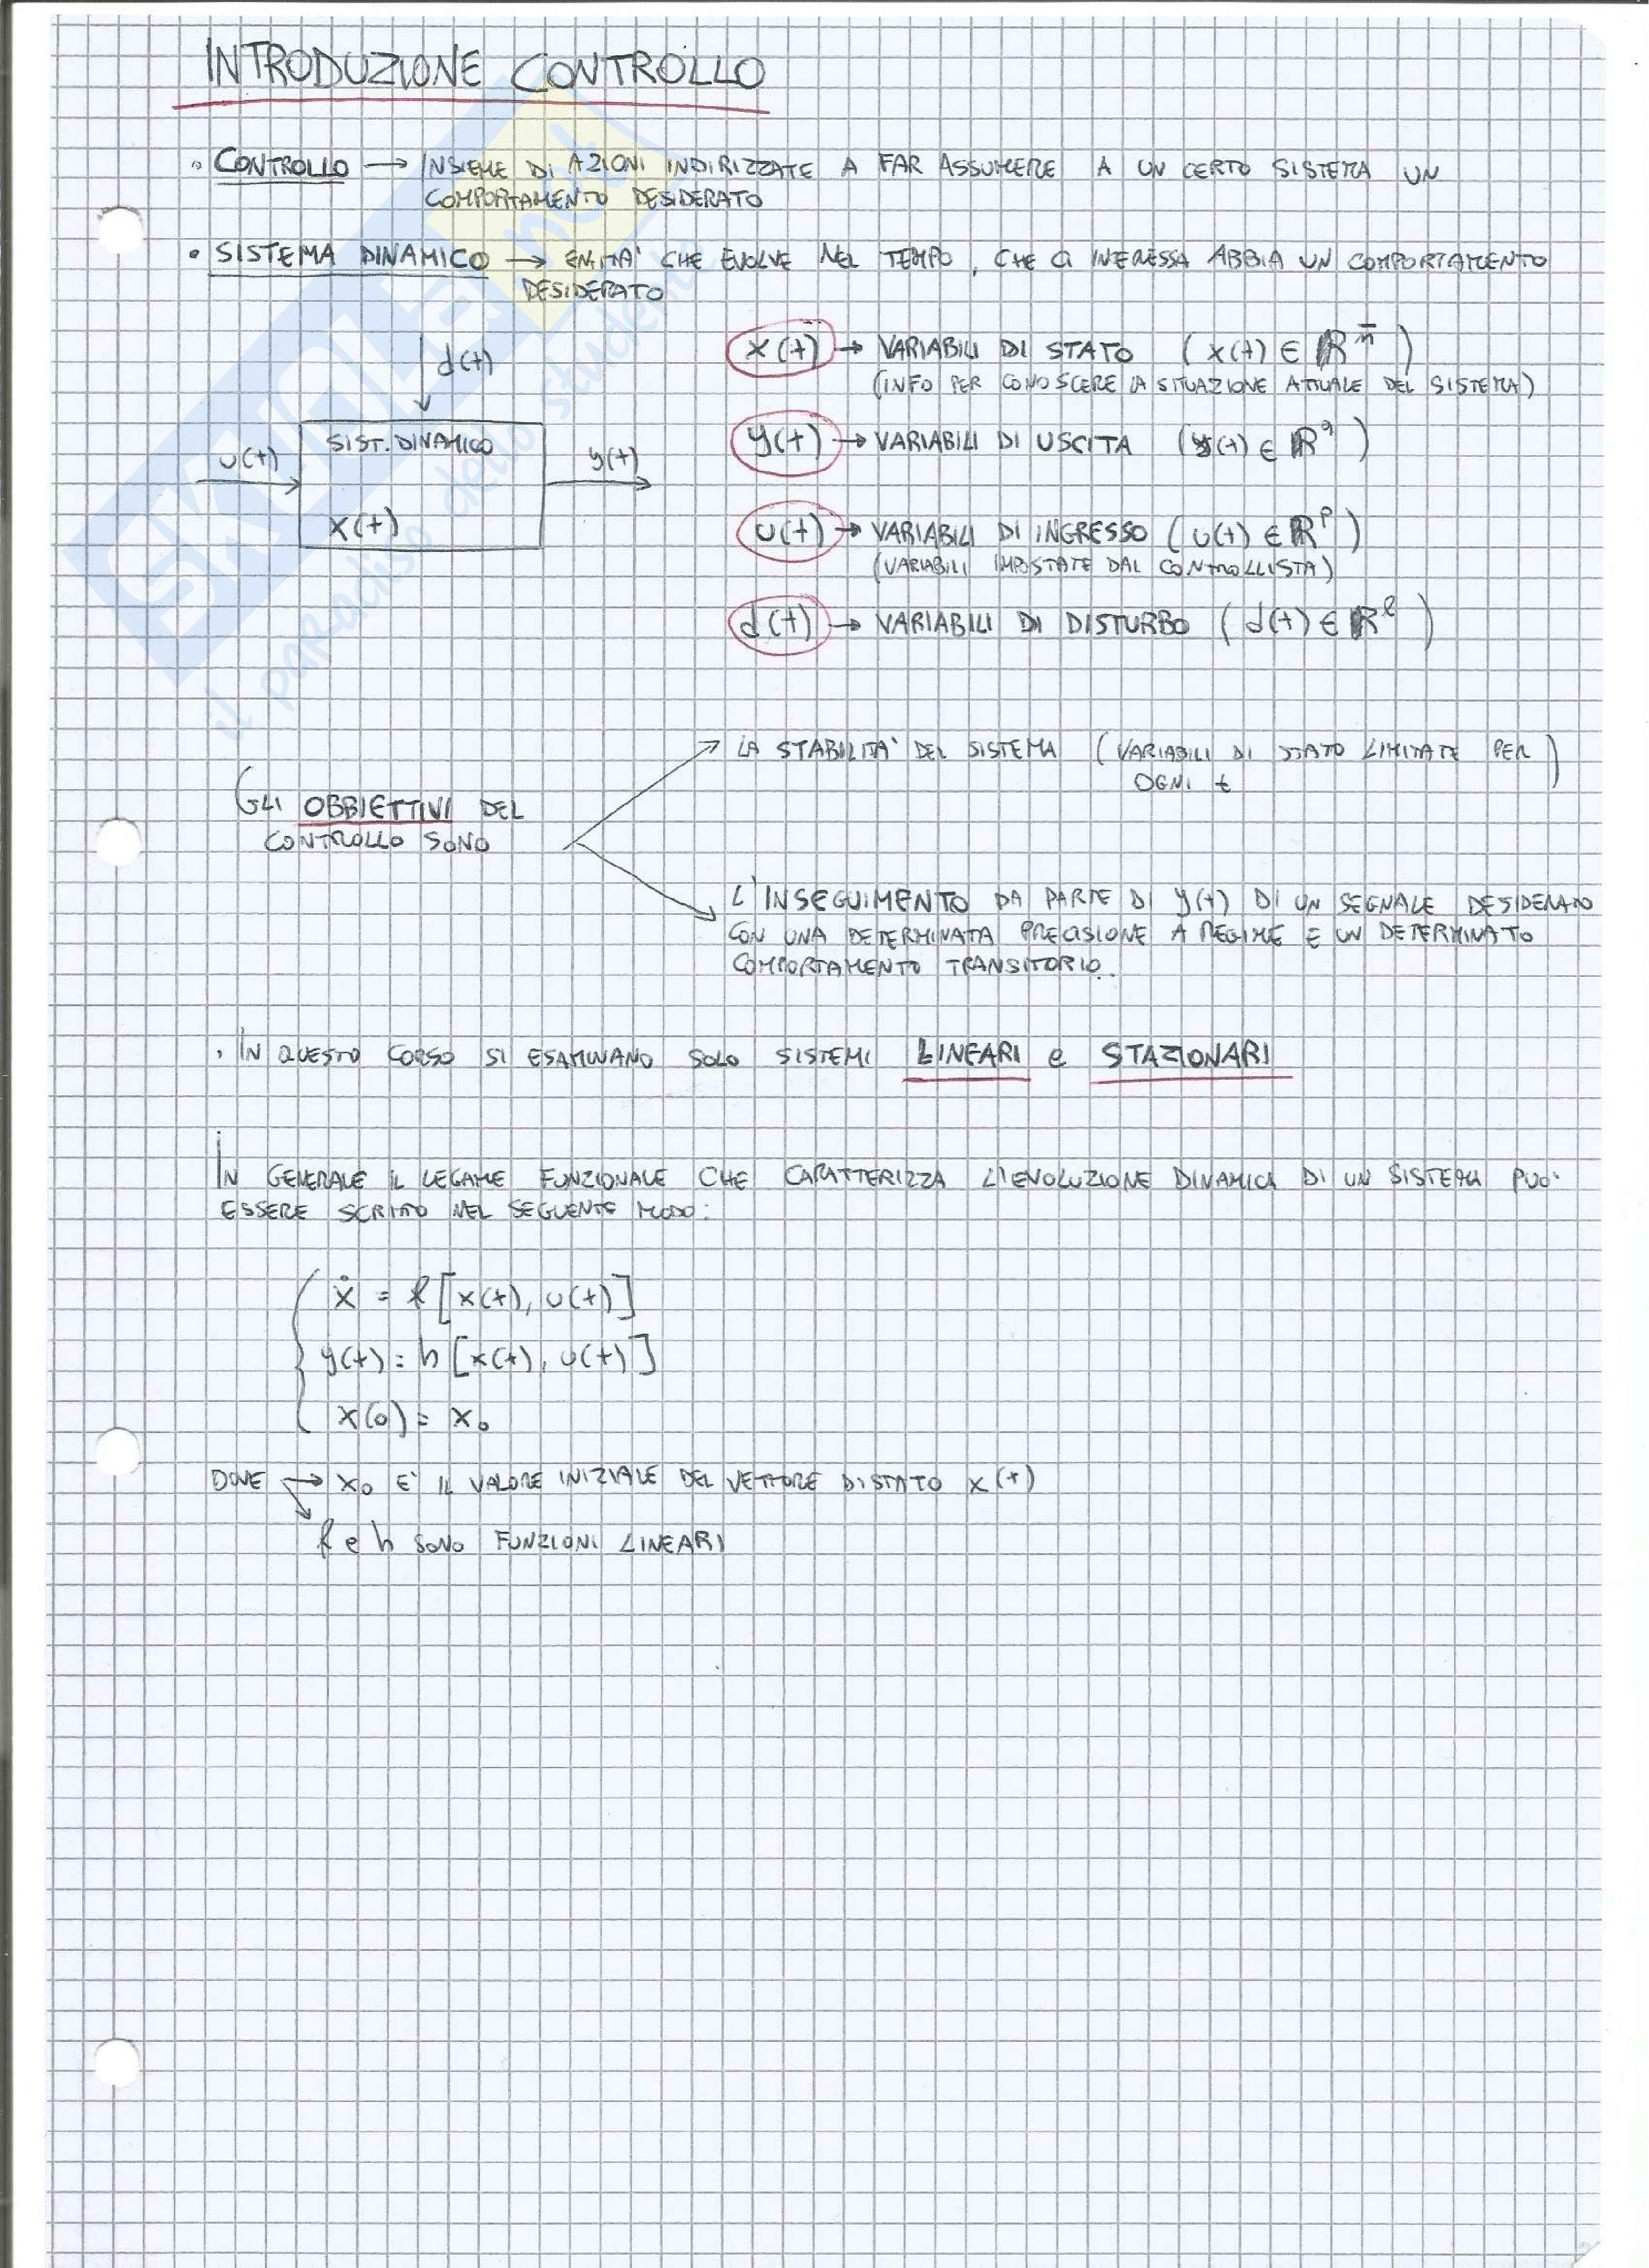 INTRODUZIONE CONTROLLO
• CONTROLLO → INSIEME DI AZIONI INDIRIZZATE A FAR ASSUMERE A UN CERTO SISTEMA UN
COMPORTAMENTO DESIDERATO
• SISTEMA DINAMICO → ENTITA' CHE EVOLVE NEL TEMPO, CHE CI INTERESSA ABBIA UN COMPORTAMENTO
DESIDERATO
d(t)
u(t)
SIST. DINAMICO
y(t)
x(t)
x(t) → VARIABILI DI STATO (x(t) ∈ ℝ^n̄)
(INFO PER CONOSCERE LA SITUAZIONE ATTUALE DEL SISTEMA)
y(t) → VARIABILI DI USCITA (y(t) ∈ ℝ^q)
u(t) → VARIABILI DI INGRESSO (u(t) ∈ ℝ^p)
(VARIABILI IMPOSTATE DAL CONTROLLISTA)
d(t) → VARIABILI DI DISTURBO (d(t) ∈ ℝ^l)
SKUOLA.net
il paradiso dello studente
GLI OBBIETTIVI DEL
CONTROLLO SONO
LA STABILITA' DEL SISTEMA (VARIABILI DI STATO LIMITATE PER
OGNI t)
L'INSEGUIMENTO DA PARTE DI y(t) DI UN SEGNALE DESIDERATO
CON UNA DETERMINATA PRECISIONE A REGIME E UN DETERMINATO
COMPORTAMENTO TRANSITORIO.
• IN QUESTO CORSO SI ESAMINANO SOLO SISTEMI LINEARI e STAZIONARI
IN GENERALE IL LEGAME FUNZIONALE CHE CARATTERIZZA L'EVOLUZIONE DINAMICA DI UN SISTEMA PUO'
ESSERE SCRITTO NEL SEGUENTE MODO:
ẋ = f[x(t), u(t)]
y(t) = h[x(t), u(t)]
x(0) = x₀
DOVE → x₀ E' IL VALORE INIZIALE DEL VETTORE DI STATO x(t)
f e h SONO FUNZIONI LINEARI